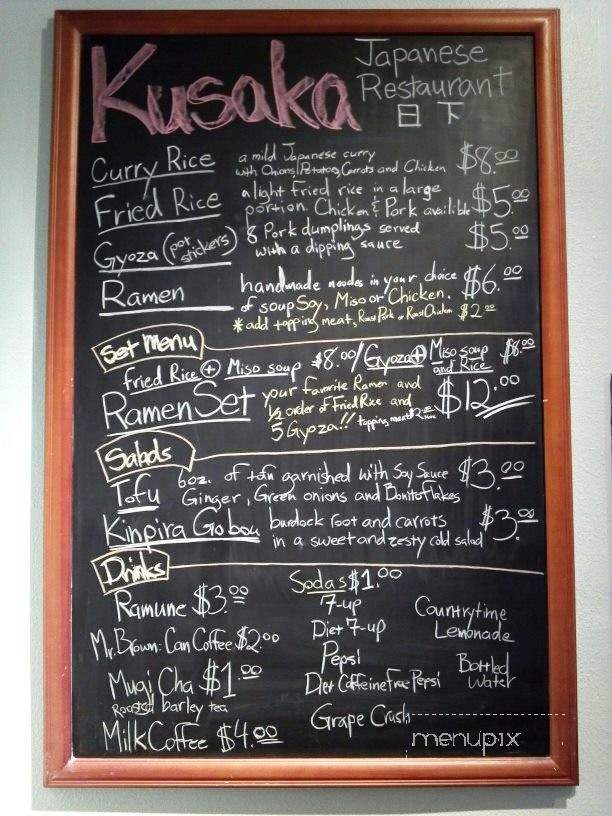 Kusaka Japanese
Restaurant
日下
Curry Rice a mild Japanese curry
with Onions, Potatoes, Carrots and Chicken $8.00
Fried Rice a light fried rice in a large
portion Chicken & Pork available $5.00
Gyoza (pot stickers) 8 Pork dumplings served
with a dipping sauce $5.00
Ramen handmade noodles in your choice
of soup Soy, Miso or Chicken. $6.00
*add topping meat, Roast Pork or Roast Chicken $2.00
Set Menu
Fried Rice + Miso soup $8.00/Gyoza + Miso soup
and Rice $8.00
Ramen Set your favorite Ramen and
1/2 order of Fried Rice and
5 Gyoza!! topping meat $12.00
Salads
Tofu 6oz. of tofu garnished with Soy Sauce
Ginger, Green onions and Bonito flakes $3.00
Kinpira Gobou burdock root and carrots
in a sweet and zesty cold salad $3.00
Drinks
Ramune $3.00
Mr. Brown: Can Coffee $2.00
Mugi Cha $1.00
Roasted barley tea
Milk Coffee $4.00
Sodas $1.00
7-up
Diet 7-up
Pepsi
Diet Caffeine Free Pepsi
Grape Crush
Countrytime
Lemonade
Bottled
Water
menupix